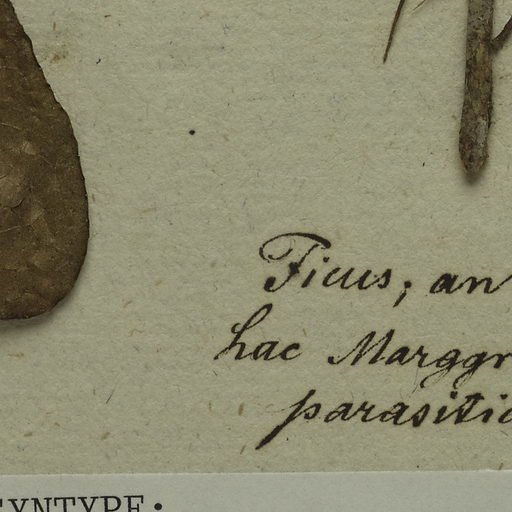 Ficus; an
hac Marggr
parasitic
SYNTYPE: